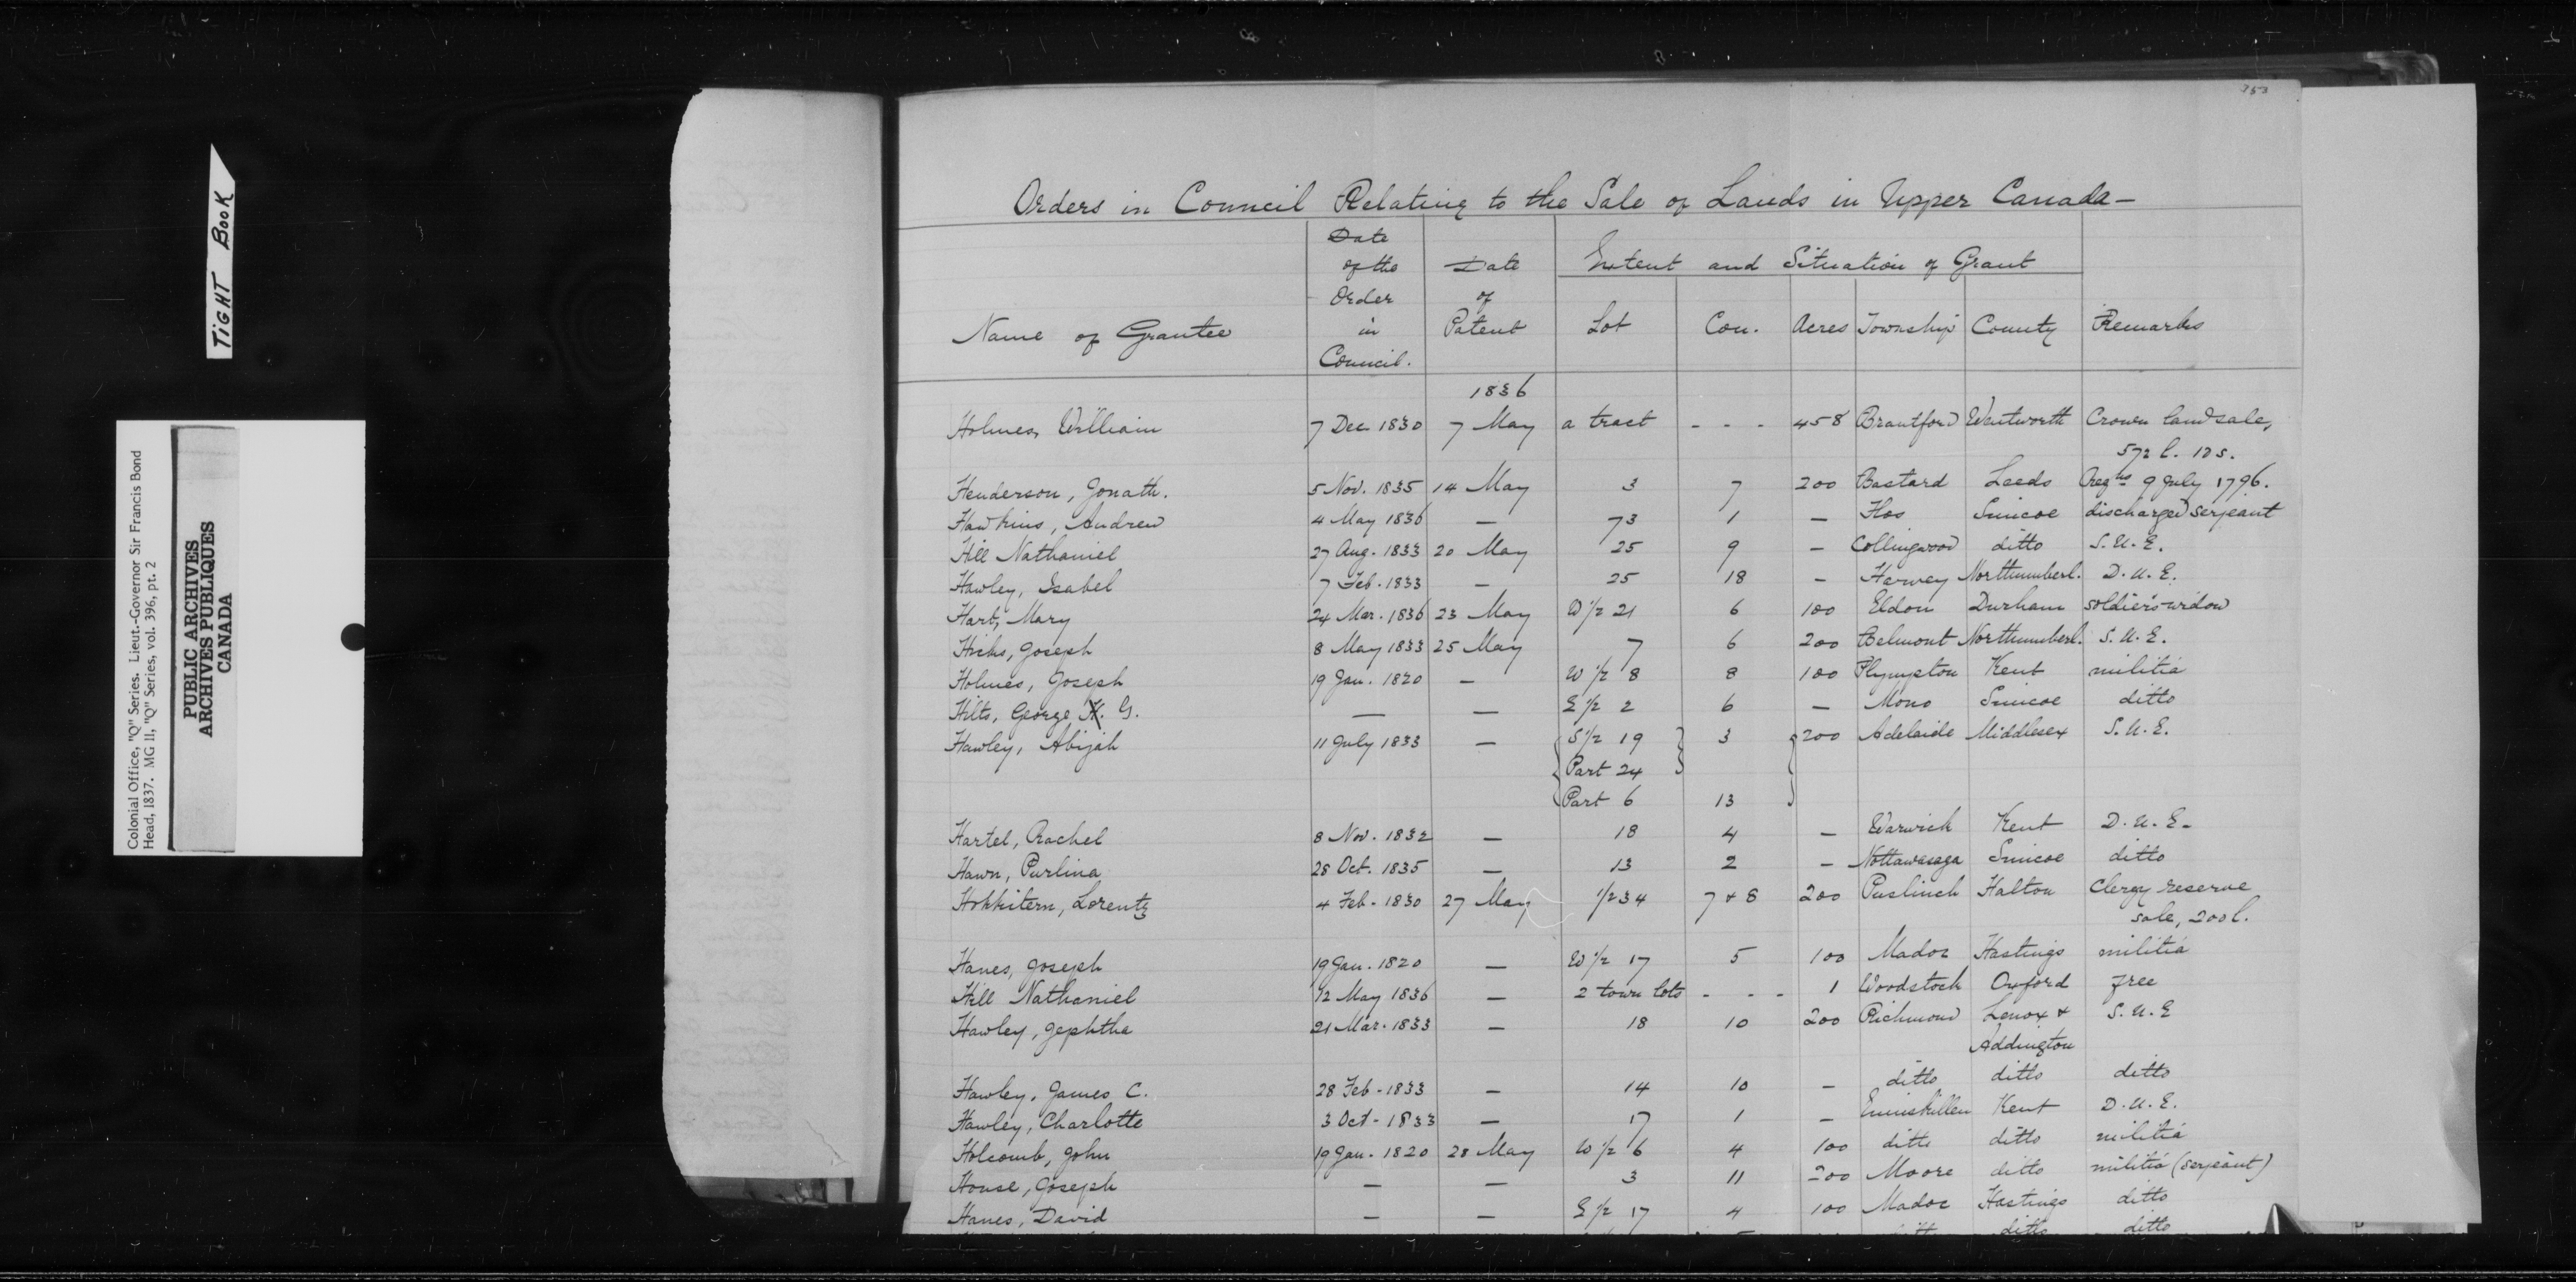 353
TIGHT BOOK
Colonial Office, "Q" Series. Lieut.-Governor Sir Francis Bond
Head, 1837. MG 11, "Q" Series, vol. 396, pt. 2
PUBLIC ARCHIVES
ARCHIVES PUBLIQUES
CANADA
Orders in Council Relating to the Sale of Lands in Upper Canada—
Name of Grantee
Date
of the
Order
in
Council.
Date
of
Patent
Extent and Situation of Grant
Lot Con. Acres Township County Remarks
1836
Holmes, William 7 Dec 1830 7 May a tract - - - 458 Brantford Wentworth Crown land sale,
572 l. 10 s.
Henderson, Jonath. 5 Nov. 1835 14 May 3 7 200 Bastard Leeds Regns 9 July 1796.
Hawkins, Andrew 4 May 1836 — 73 1 — Flos Simcoe discharged serjeant
Hill Nathaniel 27 Aug. 1833 20 May 25 9 — Collingwood ditto S.U.E.
Hawley, Isabel 7 Feb. 1833 — 25 18 — Harvey Northumberl. D.U.E.
Hart, Mary 24 Mar. 1836 23 May W 1/2 21 6 100 Eldon Durham soldier's widow
Hicks, Joseph 8 May 1833 25 May 7 6 200 Belmont Northumberl. S.U.E.
Holmes, Joseph 19 Jan. 1820 — W 1/2 8 8 100 Plympton Kent militia
Hilts, George H. G. — — E 1/2 2 6 — Mono Simcoe ditto
Hawley, Abijah 11 July 1833 — S 1/2 19 3 200 Adelaide Middlesex S.U.E.
Part 24
Part 6 13
Hartel, Rachel 8 Nov. 1832 — 18 4 — Warwick Kent D.U.E.
Hawn, Purlina 28 Oct. 1835 — 13 2 — Nottawasaga Simcoe ditto
Hokkitern, Lorentz 4 Feb. 1830 27 May 1/2 34 7 + 8 200 Puslinch Halton Clergy reserve
sale, 200 l.
Hanes, Joseph 19 Jan. 1820 — W 1/2 17 5 100 Madoc Hastings militia
Hill Nathaniel 12 May 1836 — 2 town lots - - - 1 Woodstock Oxford free
Hawley, Jephtha 21 Mar. 1833 — 18 10 200 Richmond Lenox + S.U.E
Addington
Hawley, James C. 28 Feb. 1833 — 14 10 — ditto ditto ditto
Hawley, Charlotte 3 Oct. 1833 — 17 1 — Enniskillen Kent D.U.E.
Holcomb, John 19 Jan. 1820 28 May W 1/2 6 4 100 ditto ditto militia
House, Joseph — — 3 11 200 Moore ditto militia (serjeant)
Hanes, David — — E 1/2 17 4 100 Madoc Hastings ditto
ditto ditto